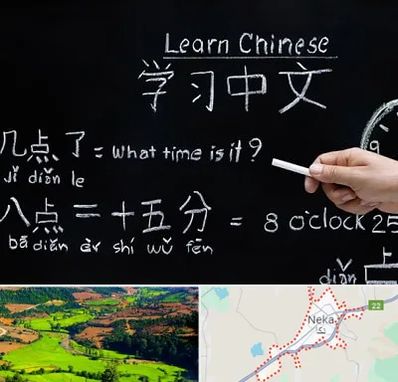 Learn Chinese
学习中文
几点了 = What time is it?
Jǐ diǎn le
八点二十五分 = 8 o'clock 25
bā diǎn èr shí wǔ fēn
9
diǎn
Neka
نکا
22